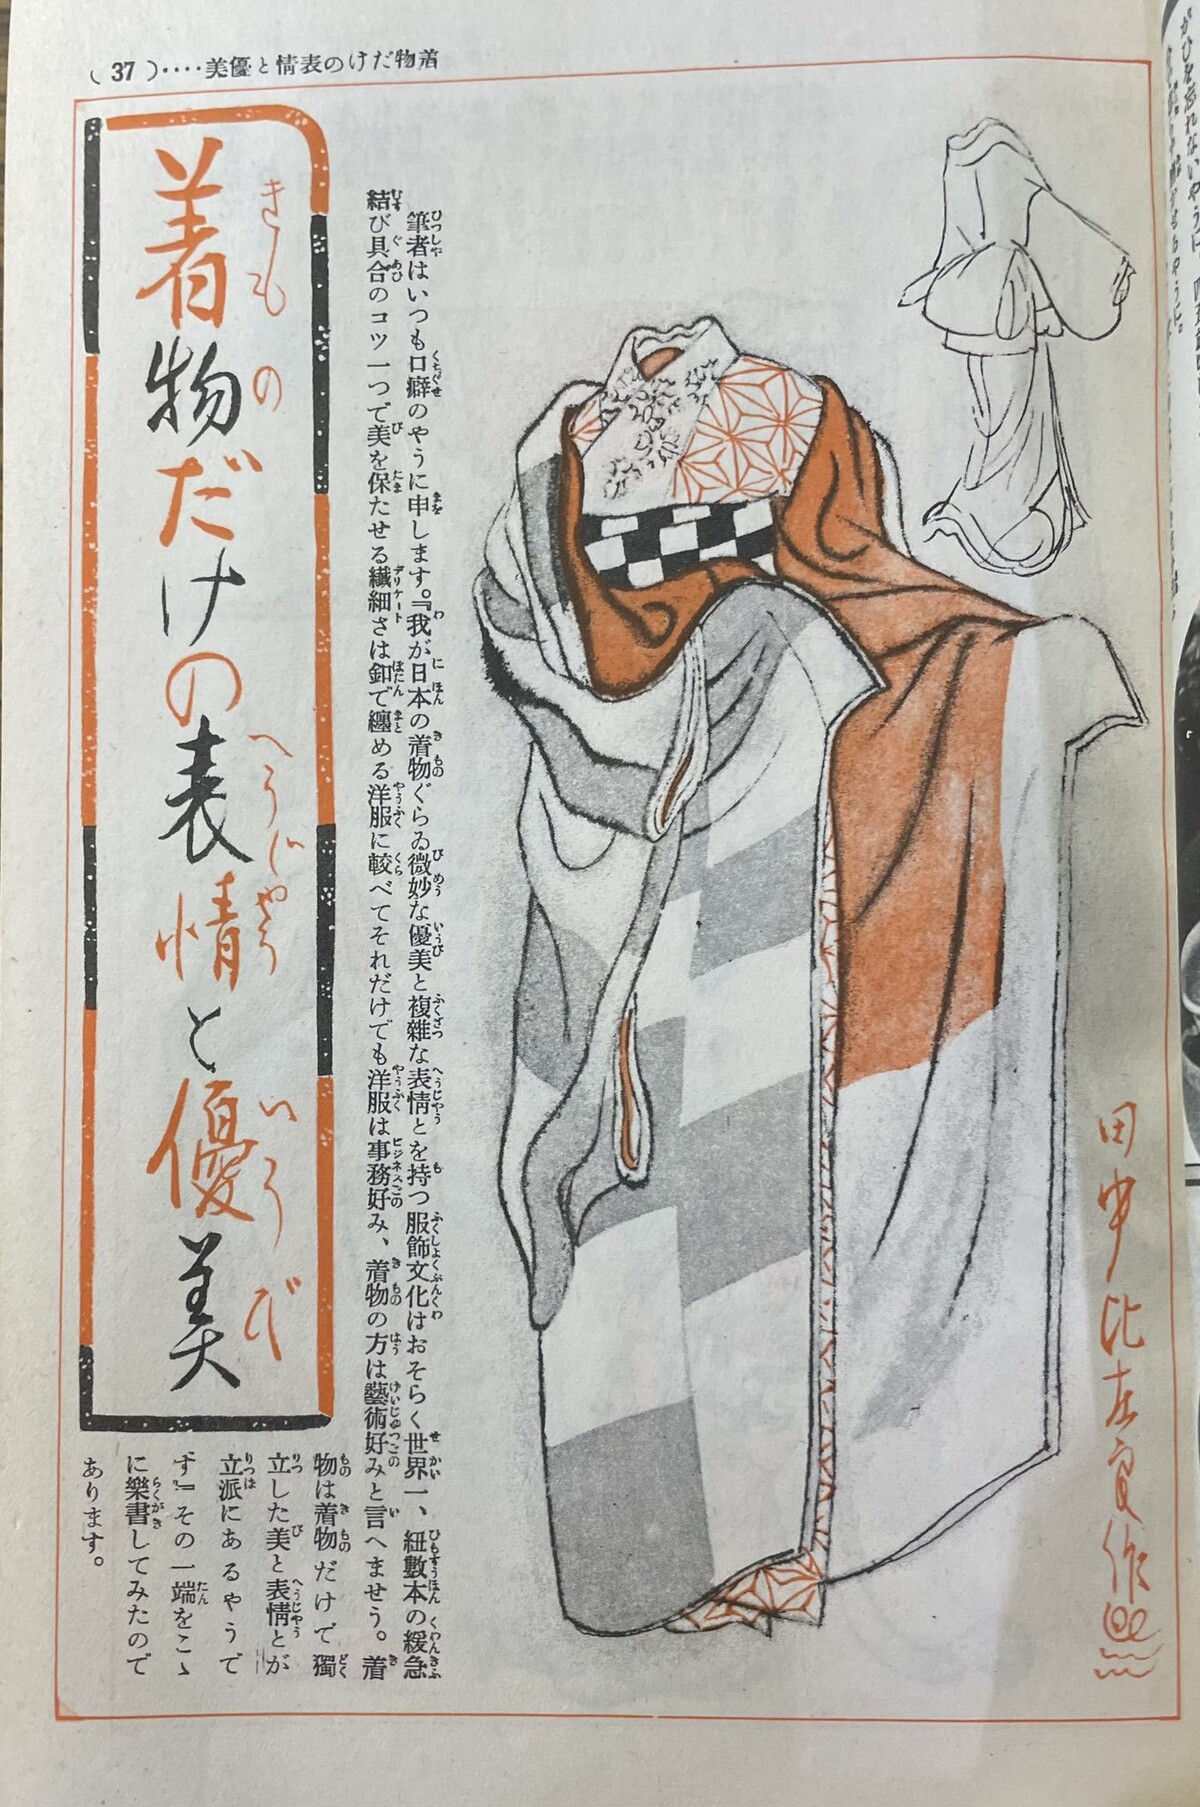 着物だけの表情と優美‥‥(37)
着物だけの表情と優美
きもの
へうじやう
いうび
筆者はいつも口癖のやうに申します。『我が日本の着物ぐらゐ微妙な優美と複雜な表情とを持つ服飾文化はおそらく世界一、紐數本の緩急
結び具合のコツ一つで美を保たせる纎細さは釦で纏める洋服に較べてそれだけでも洋服は事務好み、着物の方は藝術好みと言へませう。着
物は着物だけで獨
立した美と表情とが
立派にあるやうで
す』その一端をこゝ
に樂書してみたので
あります。
田中比左良作